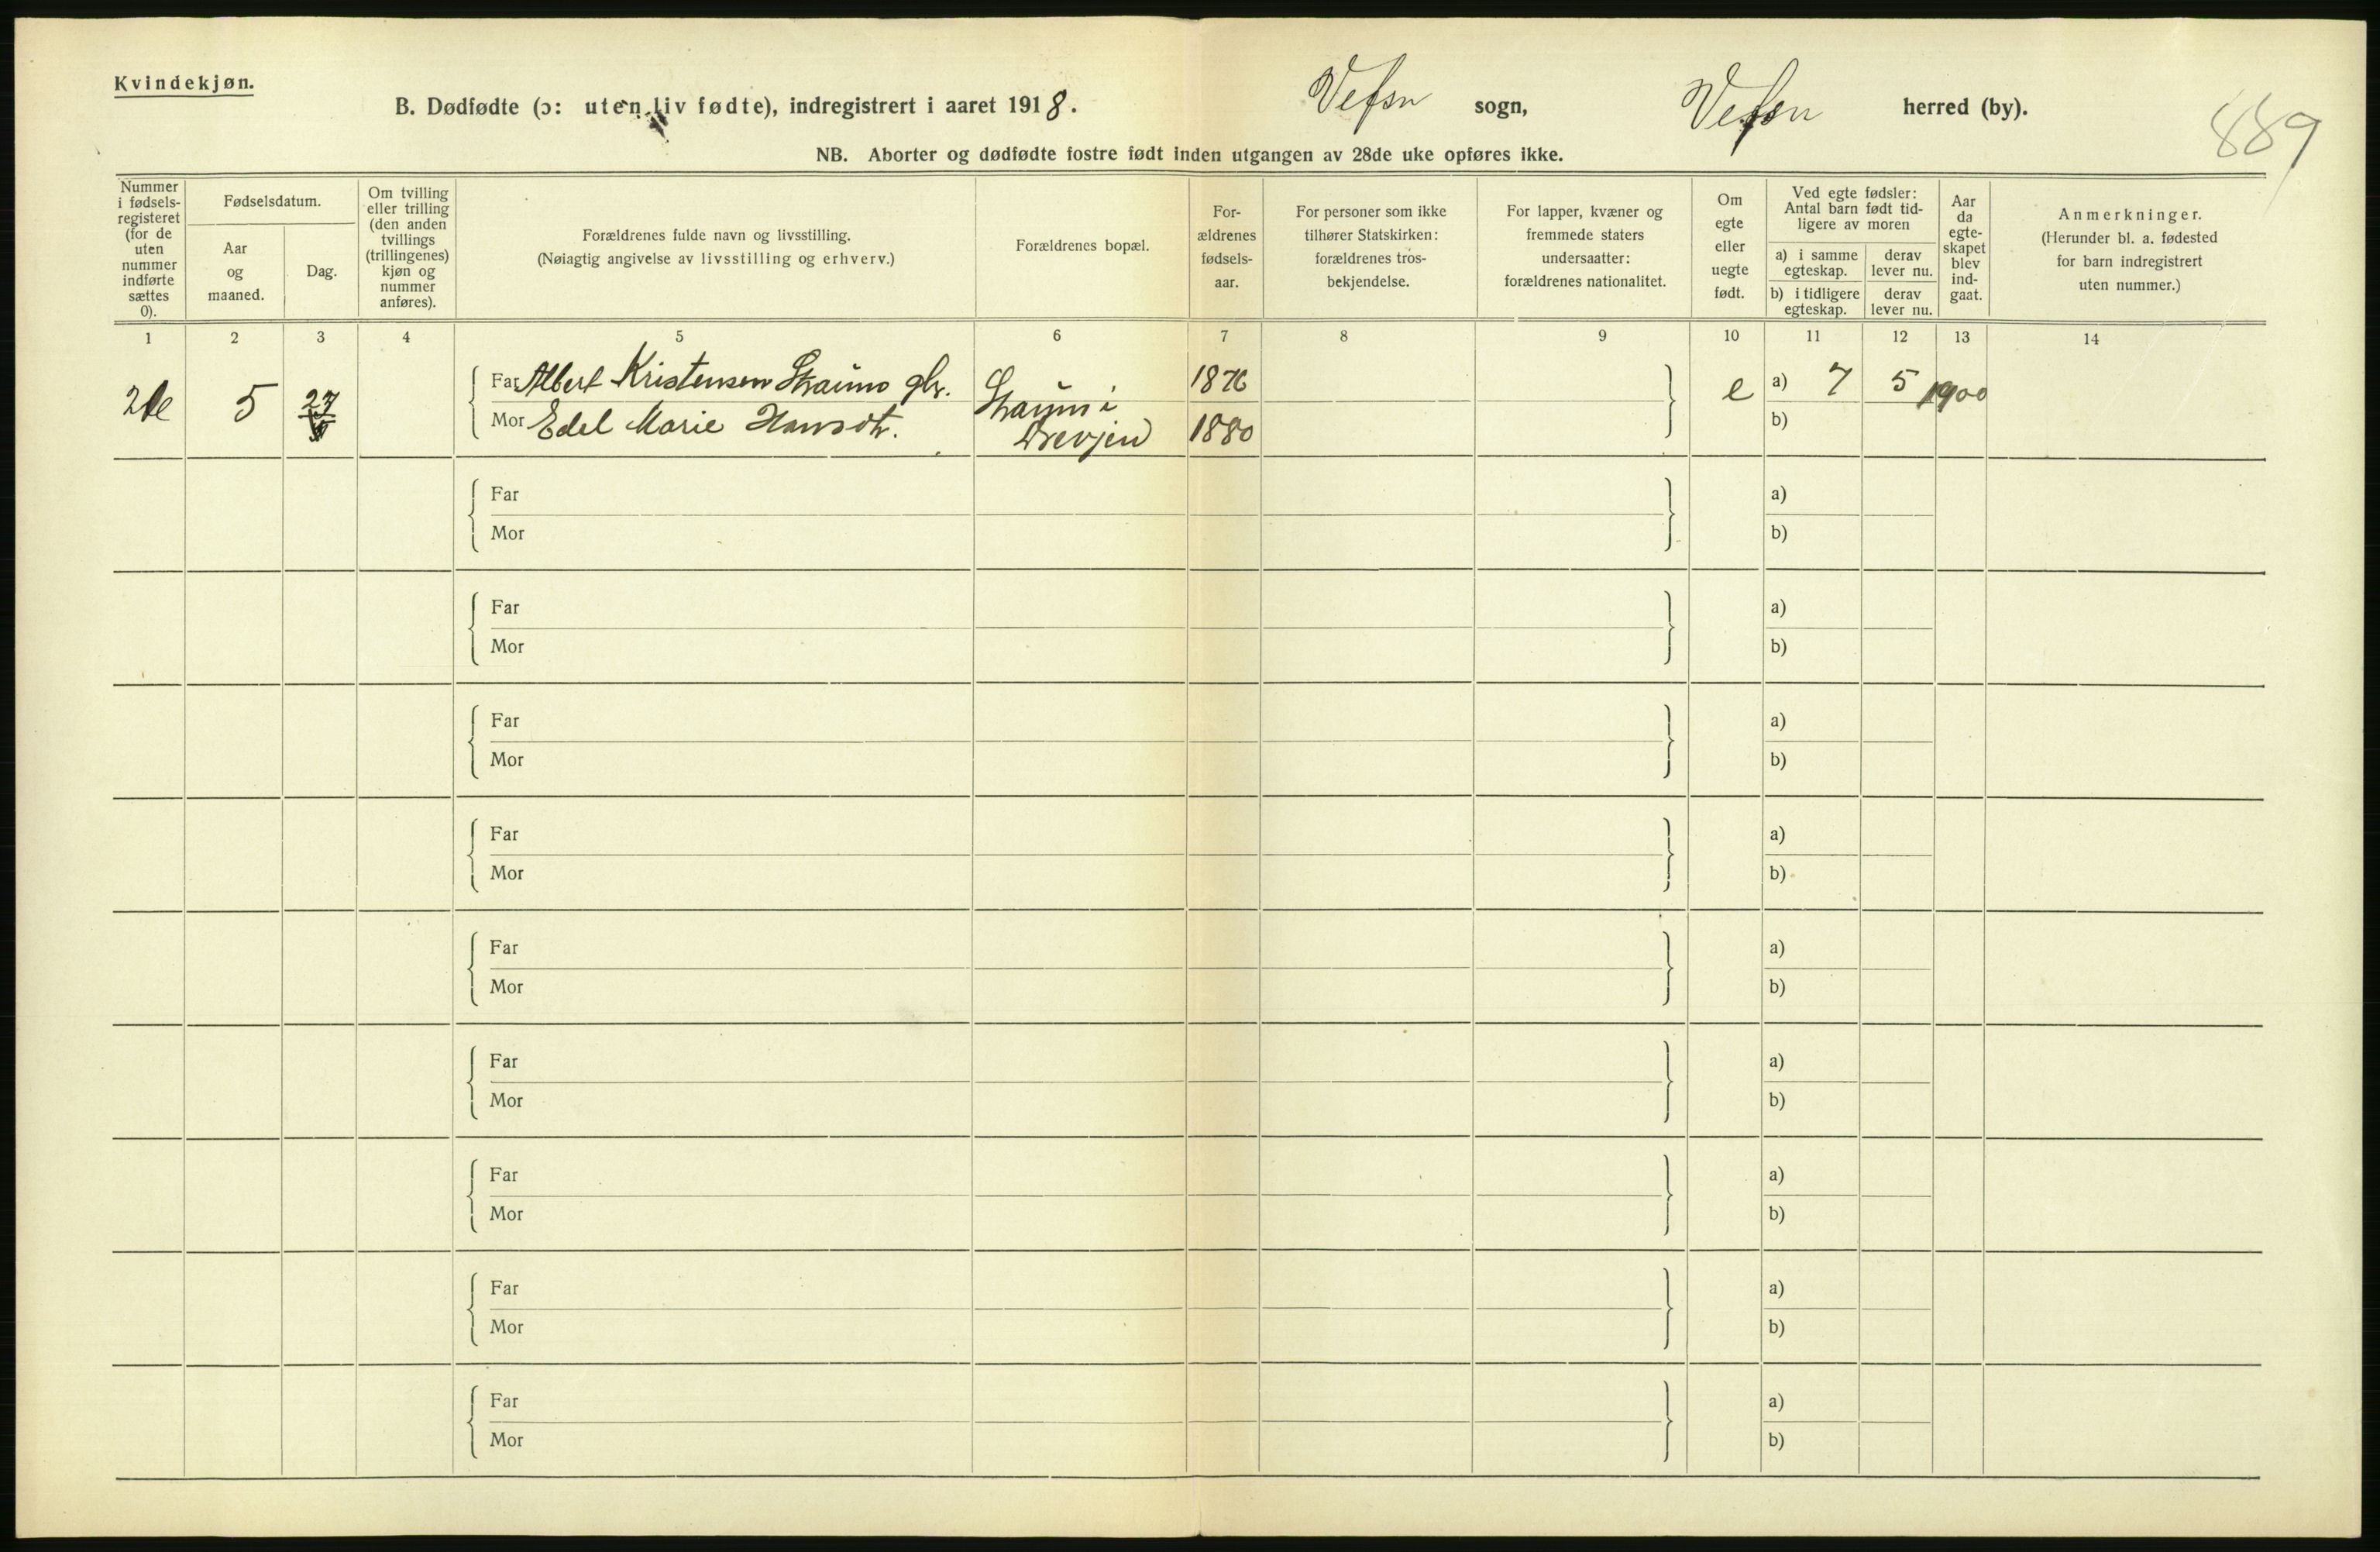 Kvindekjøn.
B. Dødfødte (ɔ: uten liv fødte), indregistrert i aaret 1918. Vefsn sogn, Vefsn herred (by).
889
NB. Aborter og dødfødte fostre født inden utgangen av 28de uke opføres ikke.
Nummer
i fødsels-
registeret
(for de
uten
nummer
indførte
sættes
0).
Fødselsdatum.
Aar
og
maaned.
Dag.
Om tvilling
eller trilling
(den anden
tvillings
(trillingenes)
kjøn og
nummer
anføres).
Forældrenes fulde navn og livsstilling.
(Nøiagtig angivelse av livsstilling og erhverv.)
Forældrenes bopæl.
For-
ældrenes
fødsels-
aar.
For personer som ikke
tilhører Statskirken:
forældrenes tros-
bekjendelse.
For lapper, kvæner og
fremmede staters
undersaatter:
forældrenes nationalitet.
Om
egte
eller
uegte
født.
Ved egte fødsler:
Antal barn født tid-
ligere av moren
a) i samme
egteskap.
derav
lever nu.
b) i tidligere
egteskap.
derav
lever nu.
Aar
da
egte-
skapet
blev
ind-
gaat.
Anmerkninger.
(Herunder bl. a. fødested
for barn indregistrert
uten nummer.)
1 2 3 4 5 6 7 8 9 10 11 12 13 14
5 27
Far Albert Kristensen gbr. 1876 e a) 7 5 1900
Mor Edel Marie Hansdtr. Drevjen 1880 b)
Far a)
Mor b)
Far a)
Mor b)
Far a)
Mor b)
Far a)
Mor b)
Far a)
Mor b)
Far a)
Mor b)
Far a)
Mor b)
Far a)
Mor b)
Far a)
Mor b)